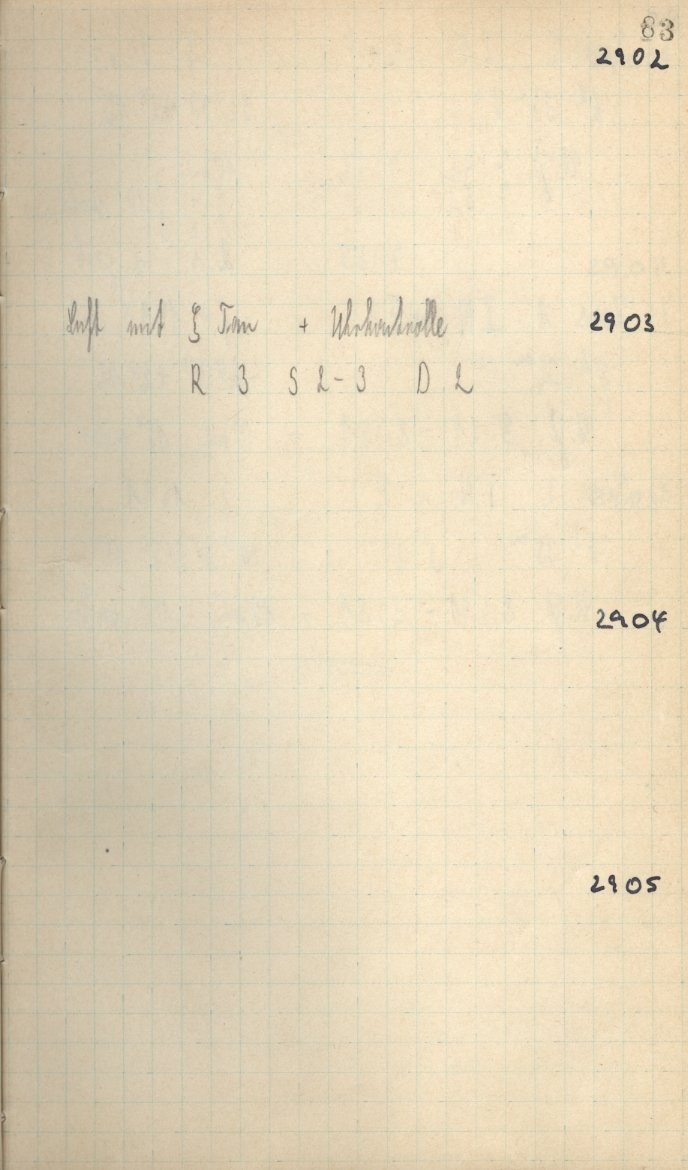 83
2902
Luft mit ξ Tau + Uhrkontrolle 2903
R 3 S 2-3 D 2
2904
2905